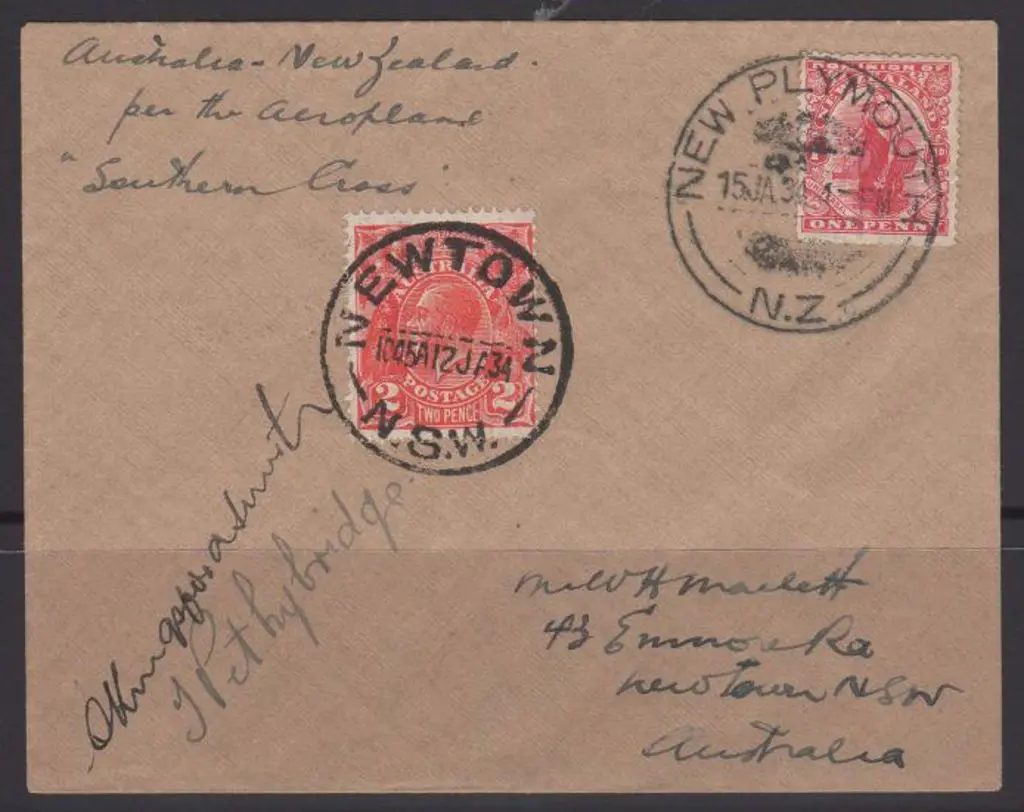 Australia - New Zealand.
per the Aeroplane
"Southern Cross"
NEW PLYMOUTH
15JA34
PM
N.Z
DOMINION OF
ZEALAND
ONE PENNY
NEWTOWN
1045A12JA34
N.S.W.
AUSTRALIA
POSTAGE
2 TWO PENCE 2
CKingsfordSmith
J Pethybridge
Mr W H Mackett
43 Enmore Rd
Newtown NSW
Australia